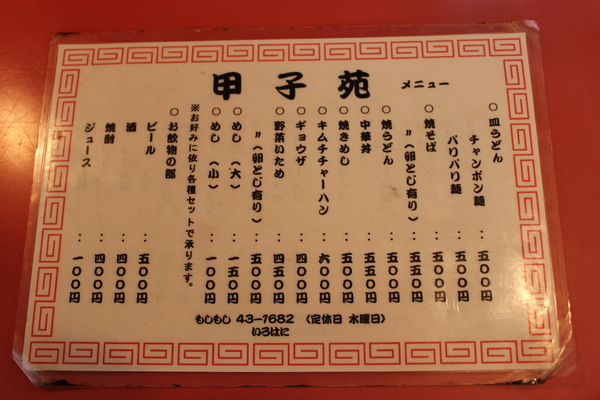 甲子苑 メニュー
○皿うどん
チャンポン麺 : 五〇〇円
パリパリ麺 : 五〇〇円
○焼そば : 五〇〇円
〃(卵とじ有り) : 五五〇円
○焼うどん : 五五〇円
○中華丼 : 五五〇円
○焼きめし : 五〇〇円
○キムチチャーハン : 六〇〇円
○ギョウザ : 四〇〇円
○野菜いため : 四五〇円
〃(卵とじ有り) : 五〇〇円
○めし (大) : 一五〇円
○めし (小) : 一〇〇円
※お好みに依り各種セットで承ります。
○お飲物の部
ビール : 五〇〇円
酒 : 四〇〇円
焼酎 : 四〇〇円
ジュース : 一〇〇円
もしもし 43-1682 (定休日 水曜日)
いろはに